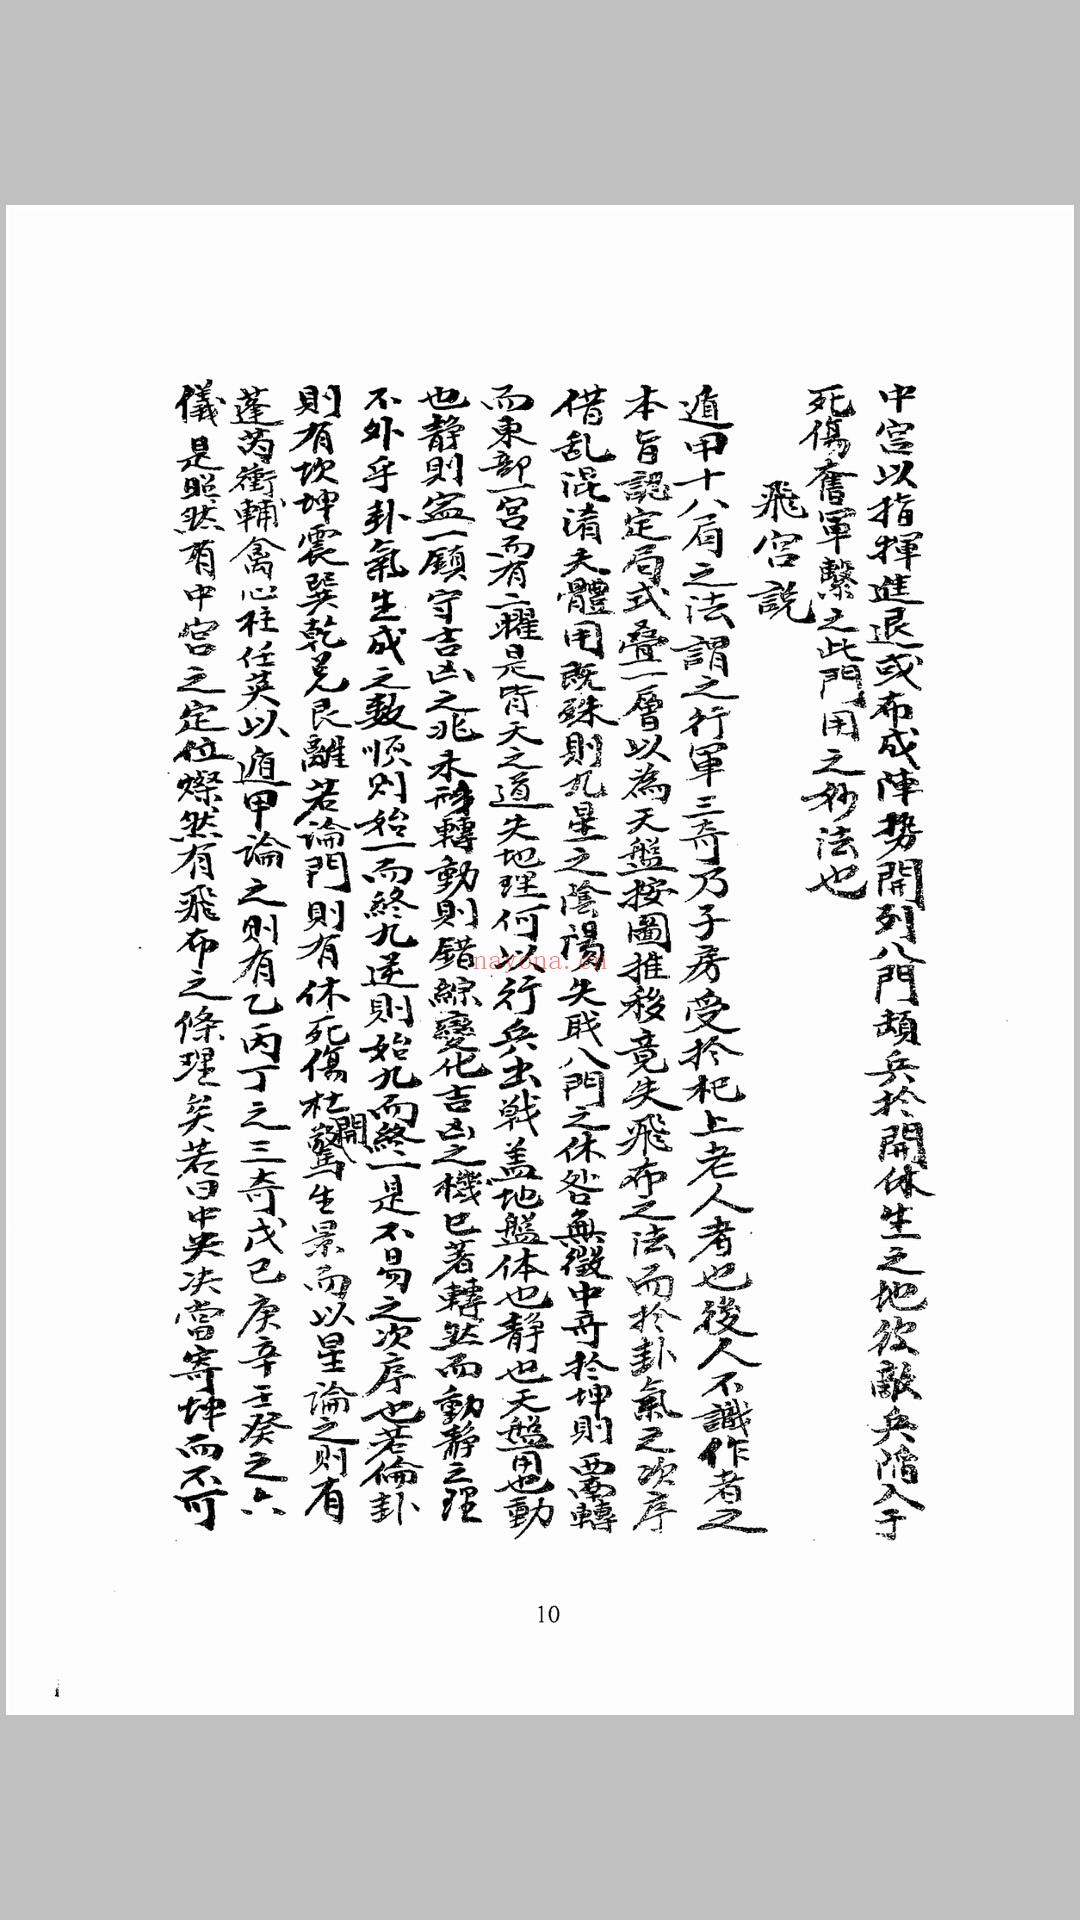 中宮以指揮進退或布成陣勢開列八門頓兵於開休生之地從敵兵陷入于
死傷奮軍擊之此門用之妙法也
飛宮説
遁甲十八局之法謂之行軍三奇乃子房受於杞上老人者也後人不識作者之
本旨認定局式疊一層以為天盤按圖推移竟失飛布之法而於卦氣之次序
借乱混淆夫體用既殊則九星之陰陽失職八門之休咎無徵中寄於坤則西南轉
而東部一宮而有二曜是皆天之道失地理何以行兵出戰盖地盤体也静也天盤用也動
也静則盗一鎮守吉凶之兆未形轉動則錯綜變化吉凶之機已著轉然而動静之理
不外乎卦氣生成之數順則始一而終九逆則始九而終一是不易之次序也若倫卦
則有坎坤震巽乾兌艮離若論門則有休死傷杜開驚生景而以星論之則有
蓬芮衝輔禽心柱任英以遁甲論之則有乙丙丁之三奇戊己庚辛壬癸之六
儀是照然有中宮之定位燦然有飛布之條理矣若曰中央决當寄坤而不可
nayona.cn
10